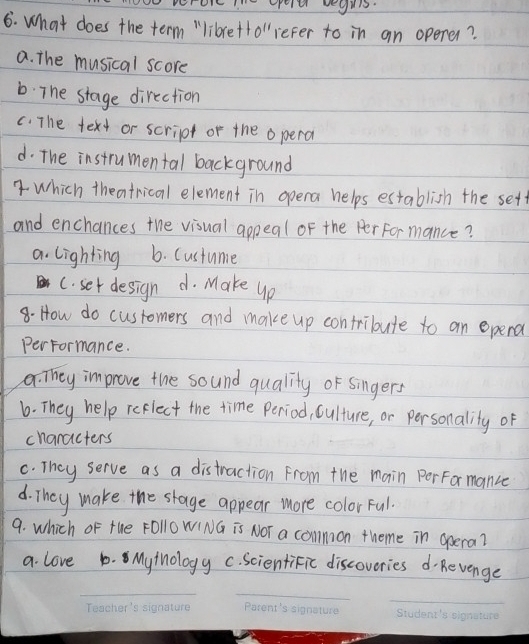 opera begins.
6. What does the term "libretto" refer to in an opera?
a. The musical score
b. The stage direction
c. The text or script or the opera
d. The instrumental background
7 Which theatrical element in opera helps establish the sett
and enchances the visual appeal of the Performance?
a. Lighting b. Custume
c. set design d. Make up
8. How do customers and make up contribute to an opera
Performance.
a. They improve the sound quality of singers
b. They help reflect the time Period, Culture, or personality of
characters
c. They serve as a distraction From the main Performance
d. They make the stage appear more colorful.
9. Which of the FOllOWING is Not a common theme in opera?
a. Love b. Mythology c. Scientific discoveries d. Revenge
Teacher's signature Parent's signature Student's signature